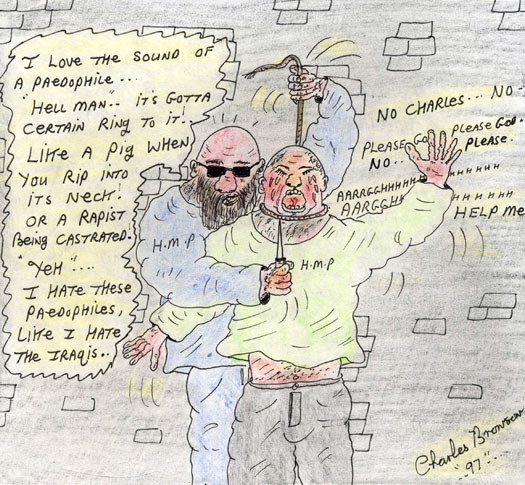 I LOVE THE SOUND OF
A PAEDOPHILE...
"HELL MAN-- IT'S GOTTA
CERTAIN RING TO IT!
LIKE A PIG WHEN
YOU RIP INTO
ITS NECK!
OR A RAPIST
BEING CASTRATED.
"YEH"....
I HATE THESE
PAEDOPHILES,
LIKE I HATE
THE IRAQJS..
NO CHARLES... NO-
PLEASE GOD
NO...
PLEASE GOD.
PLEASE.
AARRGGHHHHHHHHHHHH
AARGGHHHHHHHH
HELP ME
H.M.P
H.M.P
Charles Bronson
"97"..